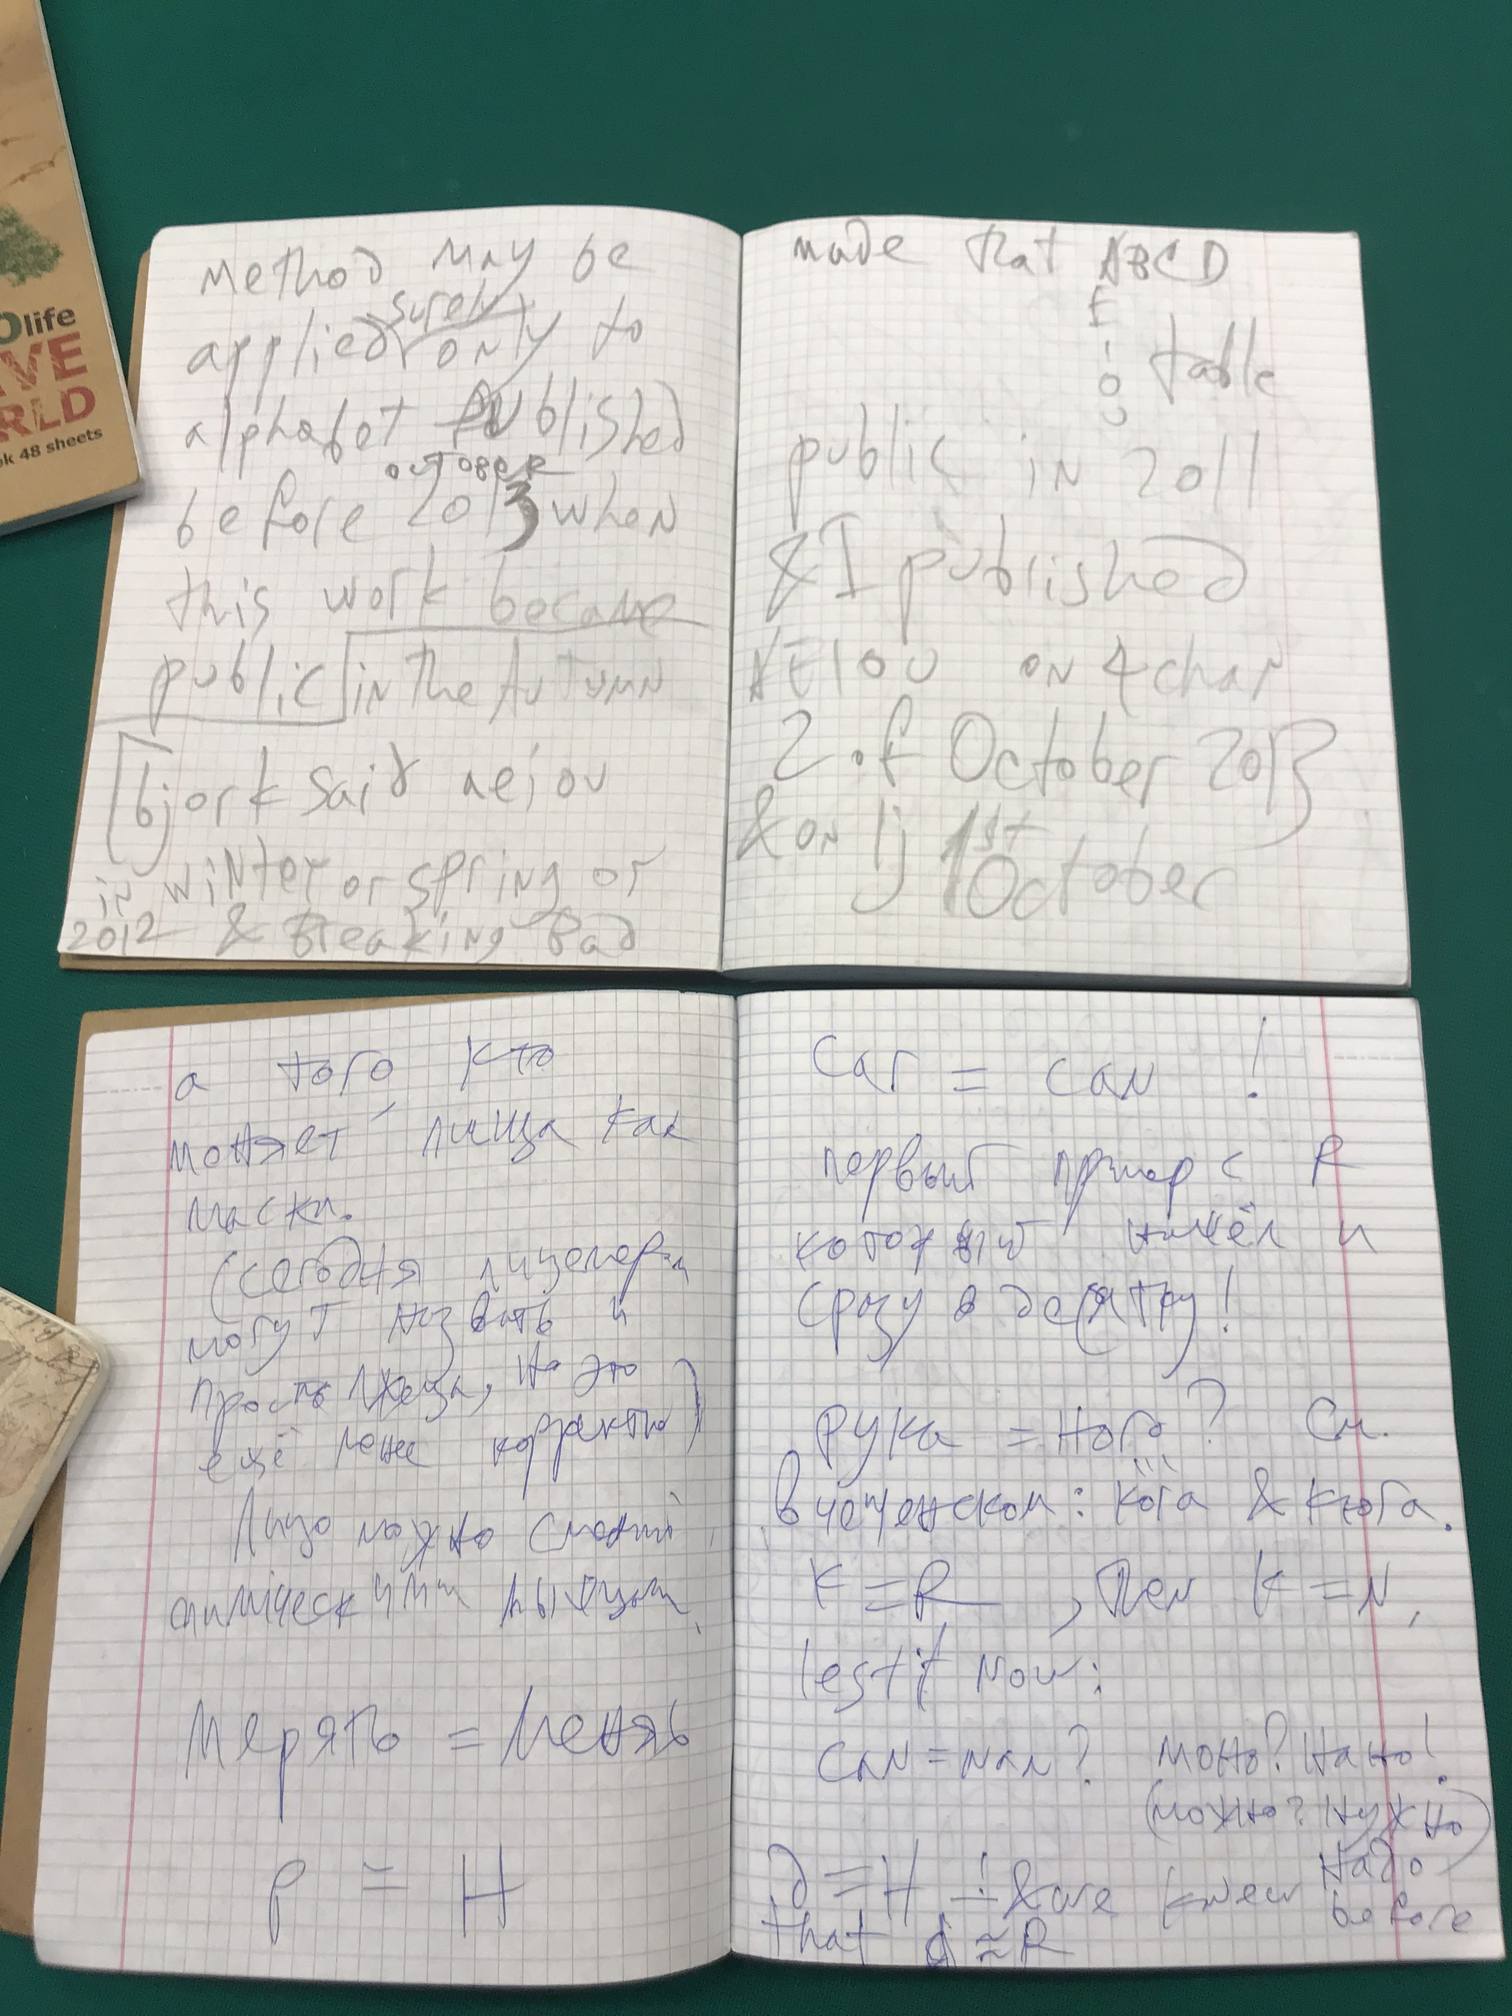 life
RLD
ok 48 sheets
method may be
surely
applied only to
alphabet published
OCTOBER
before 2013 when
this work became
public in the Autumn
bjork said aeiou
in winter or spring or
2012 & Breaking Bad
made that ABCD
E
I
O table
U
public in 2011
& I published
AEIOU on 4chan
2 of October 2013
& on lj 1st
October
а того кто
меняет лица как
маски.
(сегодня лицемером
могут назвать и
просто лжеца, но это
ещё менее корректно)
Лицо можно
мерять = менять
р = н
Car = can !
первый пример с R
который нашёл и
сразу в десятку!
рука = нога? См.
в чеченском: кога & куога.
K = R, then K = N,
test it now:
can = nan? Моно? Нано!
(можно? нужно)
надо
д = н ! & we knew before
that d ≈ R